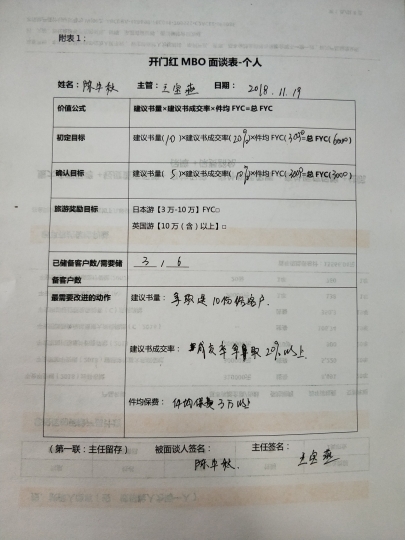 附表1：
开门红 MBO 面谈表-个人
姓名：陈年秋 主管：王宝燕 日期：2018.11.19
价值公式 建议书量×建议书成交率×件均 FYC=总 FYC
初定目标 建议书量(10)×建议书成交率(20%)×件均 FYC(3000)=总 FYC(6000)
确认目标 建议书量(5)×建议书成交率(10%)×件均 FYC(3000)=总 FYC(3000)
旅游奖励目标 日本游【3万-10万】FYC□
英国游【10万（含）以上】□
已储备客户数/需要储备客户数 3，6
最需要改进的动作 建议书量：争取送10份给客户.
建议书成交率：成交率争取20%以上
件均保费：件均保费3万以上
（第一联：主任留存） 被面谈人签名： 主任签名：
陈年秋. 王宝燕